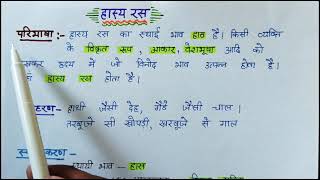 हास्य रस
परिभाषा :- हास्य रस का स्थाई भाव हास है। किसी व्यक्ति
के विकृत रूप, आकार, वेशभूषा आदि को
देखकर हृदय में जो विनोद भाव उत्पन्न होता है।
हास्य रस होता है।
हरण :- हाथी जैसी देह, गैंडे जैसी चाल।
तरबूजे सी खोपड़ी, खरबूजे से गाल
करण :-
स्थायी भाव — हास